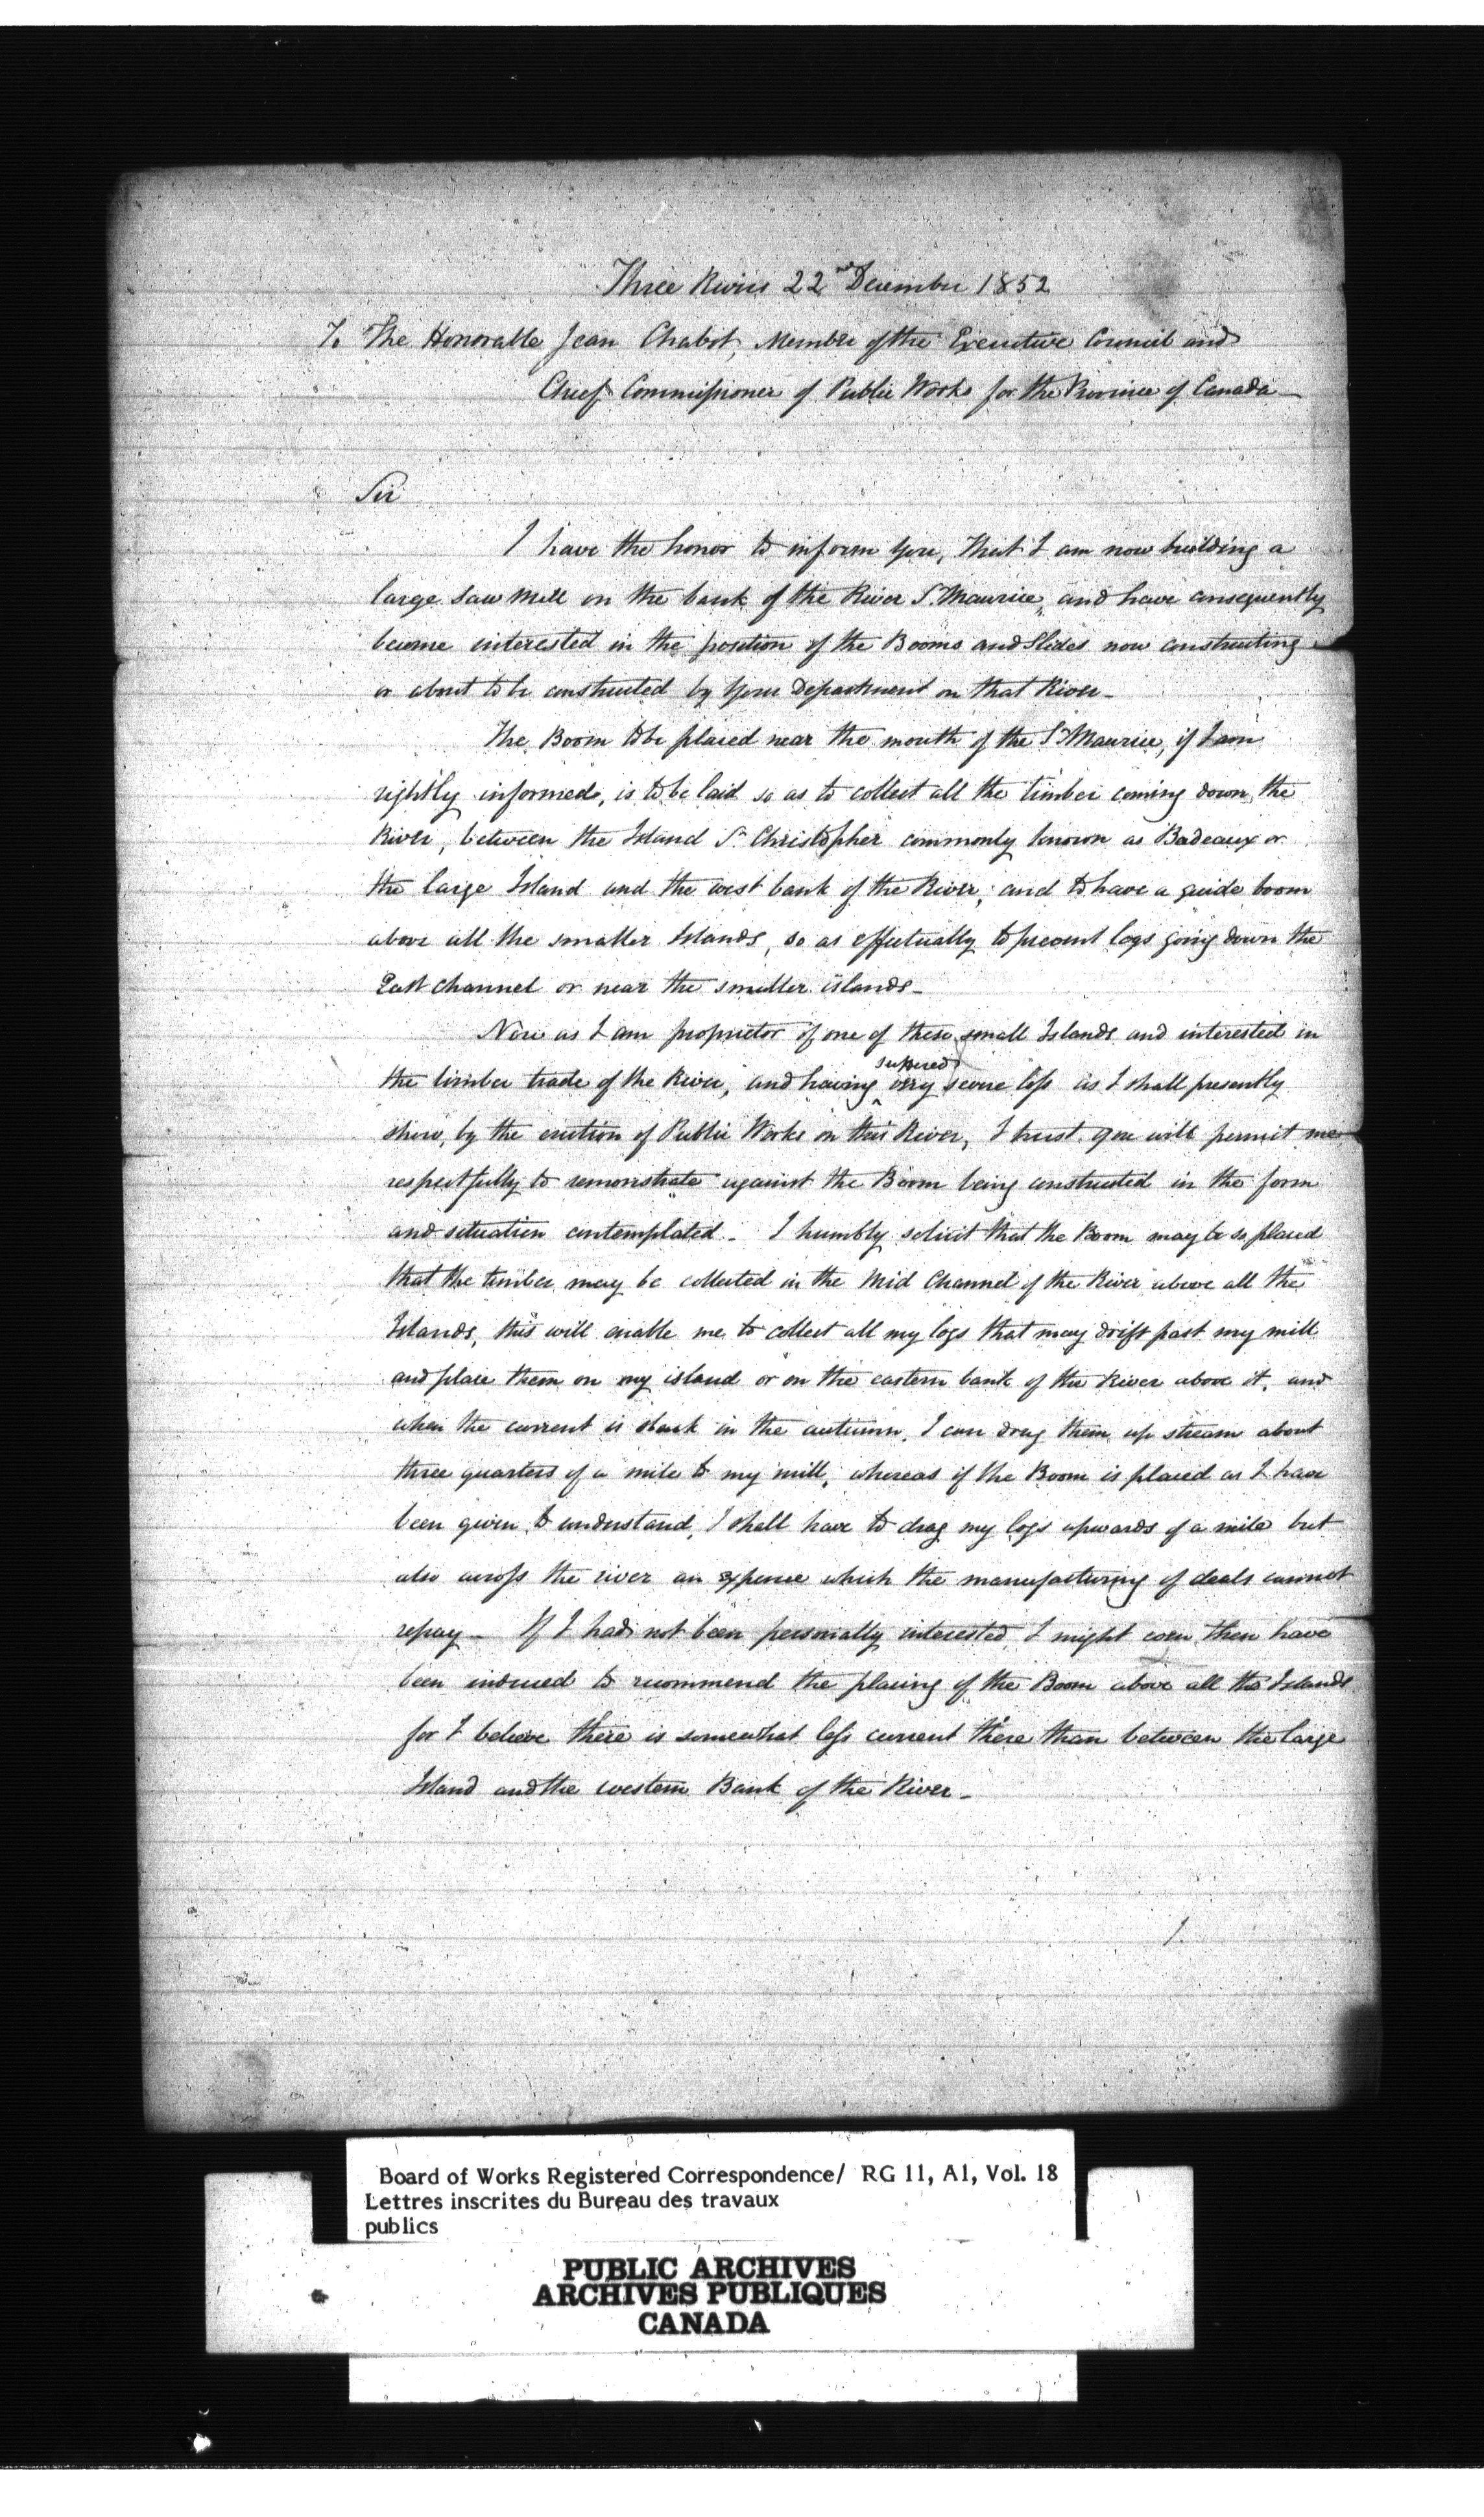 Three Rivers 22nd December 1852
To The Honorable Jean Chabot, Member of the Executive Council and
Chief Commissioner of Public Works for the Province of Canada —
Sir
I have the honor to inform you, that I am now building a
large Saw Mill on the bank of the River St. Maurice, and have consequently
become interested in the position of the Booms and Slides now constructing
or about to be constructed by your Department on that River —
The Boom to be placed near the mouth of the St Maurice, if I am
rightly informed, is to be laid so as to collect all the timber coming down the
River, between the Island St. Christopher commonly known as Badeaux or
the large Island and the west bank of the River; and to have a guide boom
above all the smaller Islands, so as effectually to prevent logs going down the
East channel or near the smaller islands —
Now as I am proprietor of one of these small Islands and interested in
the timber trade of the River, and having suffered very severe loss as I shall presently
show, by the erection of Public Works on this River, I trust you will permit me
respectfully to remonstrate against the Boom being constructed in the form
and situation contemplated — I humbly solicit that the Boom may be so placed
that the timber may be collected in the Mid Channel of the River above all the
Islands, this will enable me to collect all my logs that may drift past my mill
and place them on my island or on the eastern bank of the River above it, and
when the current is slack in the autumn, I can drag them up stream about
three quarters of a mile to my mill, whereas if the Boom is placed as I have
been given to understand, I shall have to drag my logs upwards of a mile but
also across the river an expence which the manufacturing of deals cannot
repay — If I had not been personally interested I might even then have
been induced to recommend the placing of the Boom above all the Islands
for I believe there is somewhat less current there than between the large
Island and the western Bank of the River —
1.
Board of Works Registered Correspondence/ RG 11, A1, Vol. 18
Lettres inscrites du Bureau des travaux
publics
PUBLIC ARCHIVES
ARCHIVES PUBLIQUES
CANADA